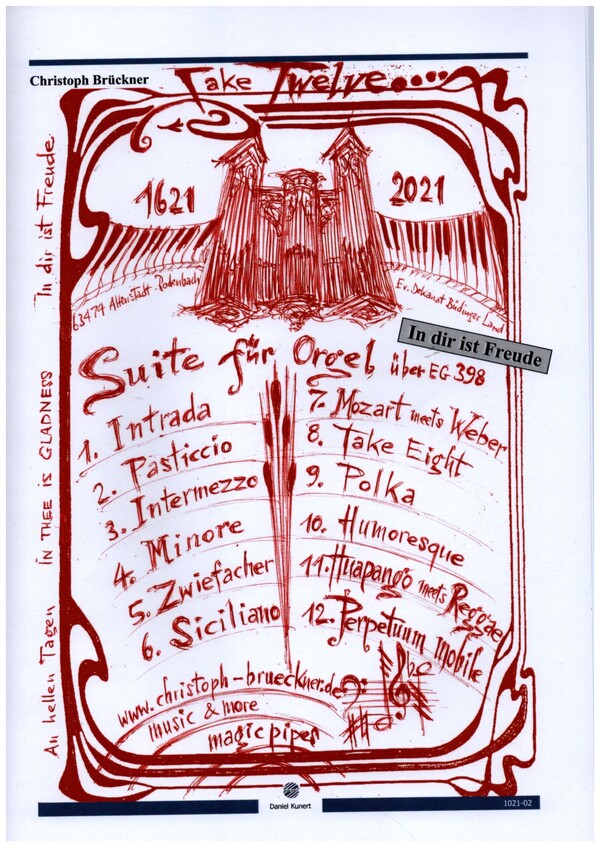 Christoph Brückner
Take Twelve....
1621
2021
63474 Altenstadt-Rodenbach
Ev. Dekanat Büdinger Land
In dir ist Freude
Suite für Orgel über EG 398
1. Intrada
2. Pasticcio
3. Intermezzo
4. Minore
5. Zwiefacher
6. Siciliano
7. Mozart meets Weber
8. Take Eight
9. Polka
10. Humoresque
11. Huapango meets Reggae
12. Perpetuum mobile
www.christoph-brueckner.de
music & more
magic pipes
An hellen Tagen IN THEE IS GLADNESS In dir ist Freude
Daniel Kunert
1021-02